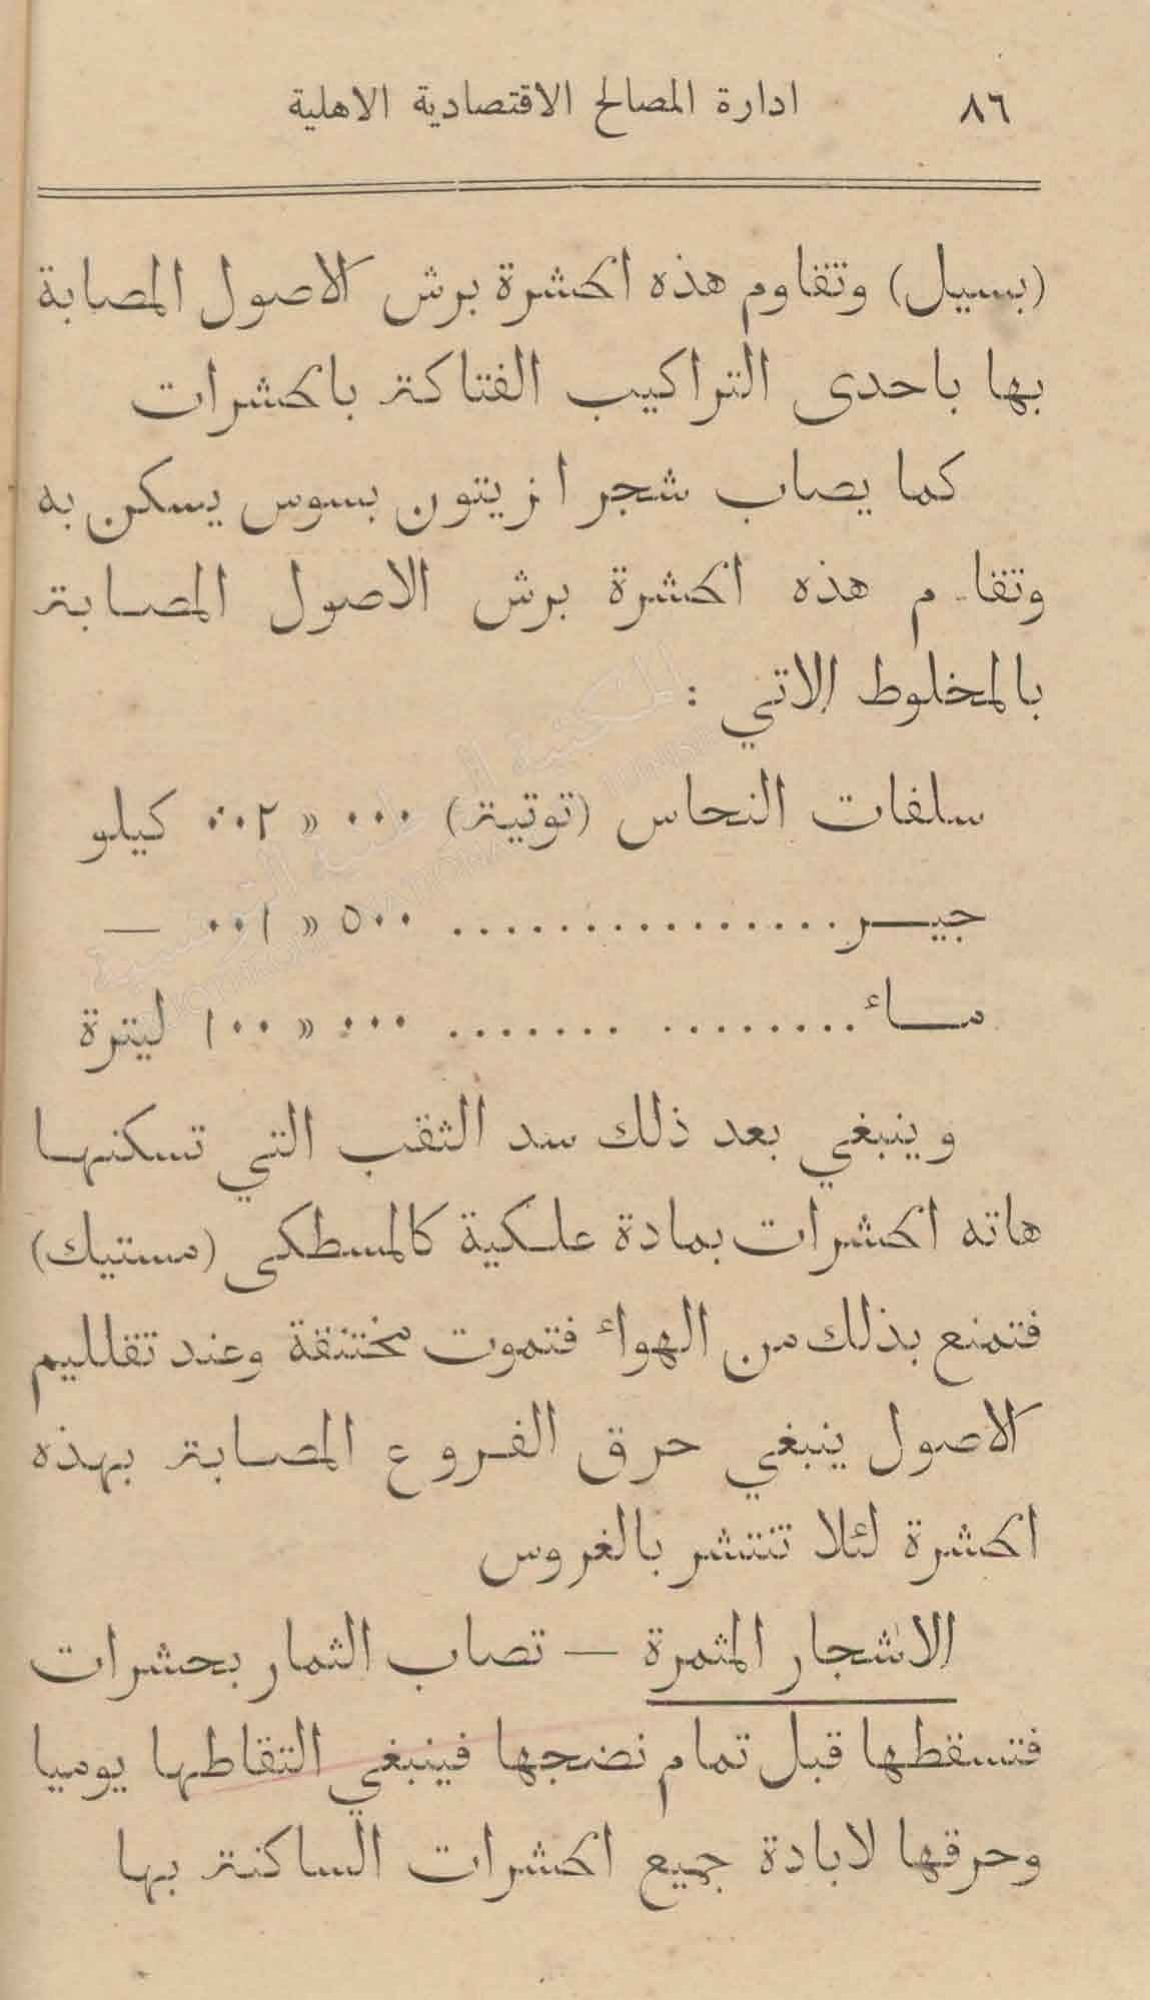 ٨٦ ادارة المصالح الاقتصادية الاهلية
(بسيل) وتقاوم هذه الحشرة برش الاصول المصابة
بها باحدى التراكيب الفتاكة بالحشرات
كما يصاب شجر الزيتون بسوس يسكن به
وتقاوم هذه الحشرة برش الاصول المصابة
بالمخلوط الاتي :
سلفات النحاس (توتية) ٠٠٠ » ٠٠٢ كيلو
جير ................ ٥٠٠ » ٠٠١ —
ماء ........ ....... ٠٠٠ » ١٠٠ ليترة
وينبغي بعد ذلك سد الثقب التي تسكنها
هاته الحشرات بمادة علكية كالمسطكى (مستيك)
فتمنع بذلك من الهواء فتموت مختنقة وعند تقلليم
الاصول ينبغي حرق الفروع المصابة بهذه
الحشرة لئلا تنتشر بالغروس
الاشجار المثمرة — تصاب الثمار بحشرات
فتسقطها قبل تمام نضجها فينبغي التقاطها يوميا
وحرقها لابادة جميع الحشرات الساكنة بها